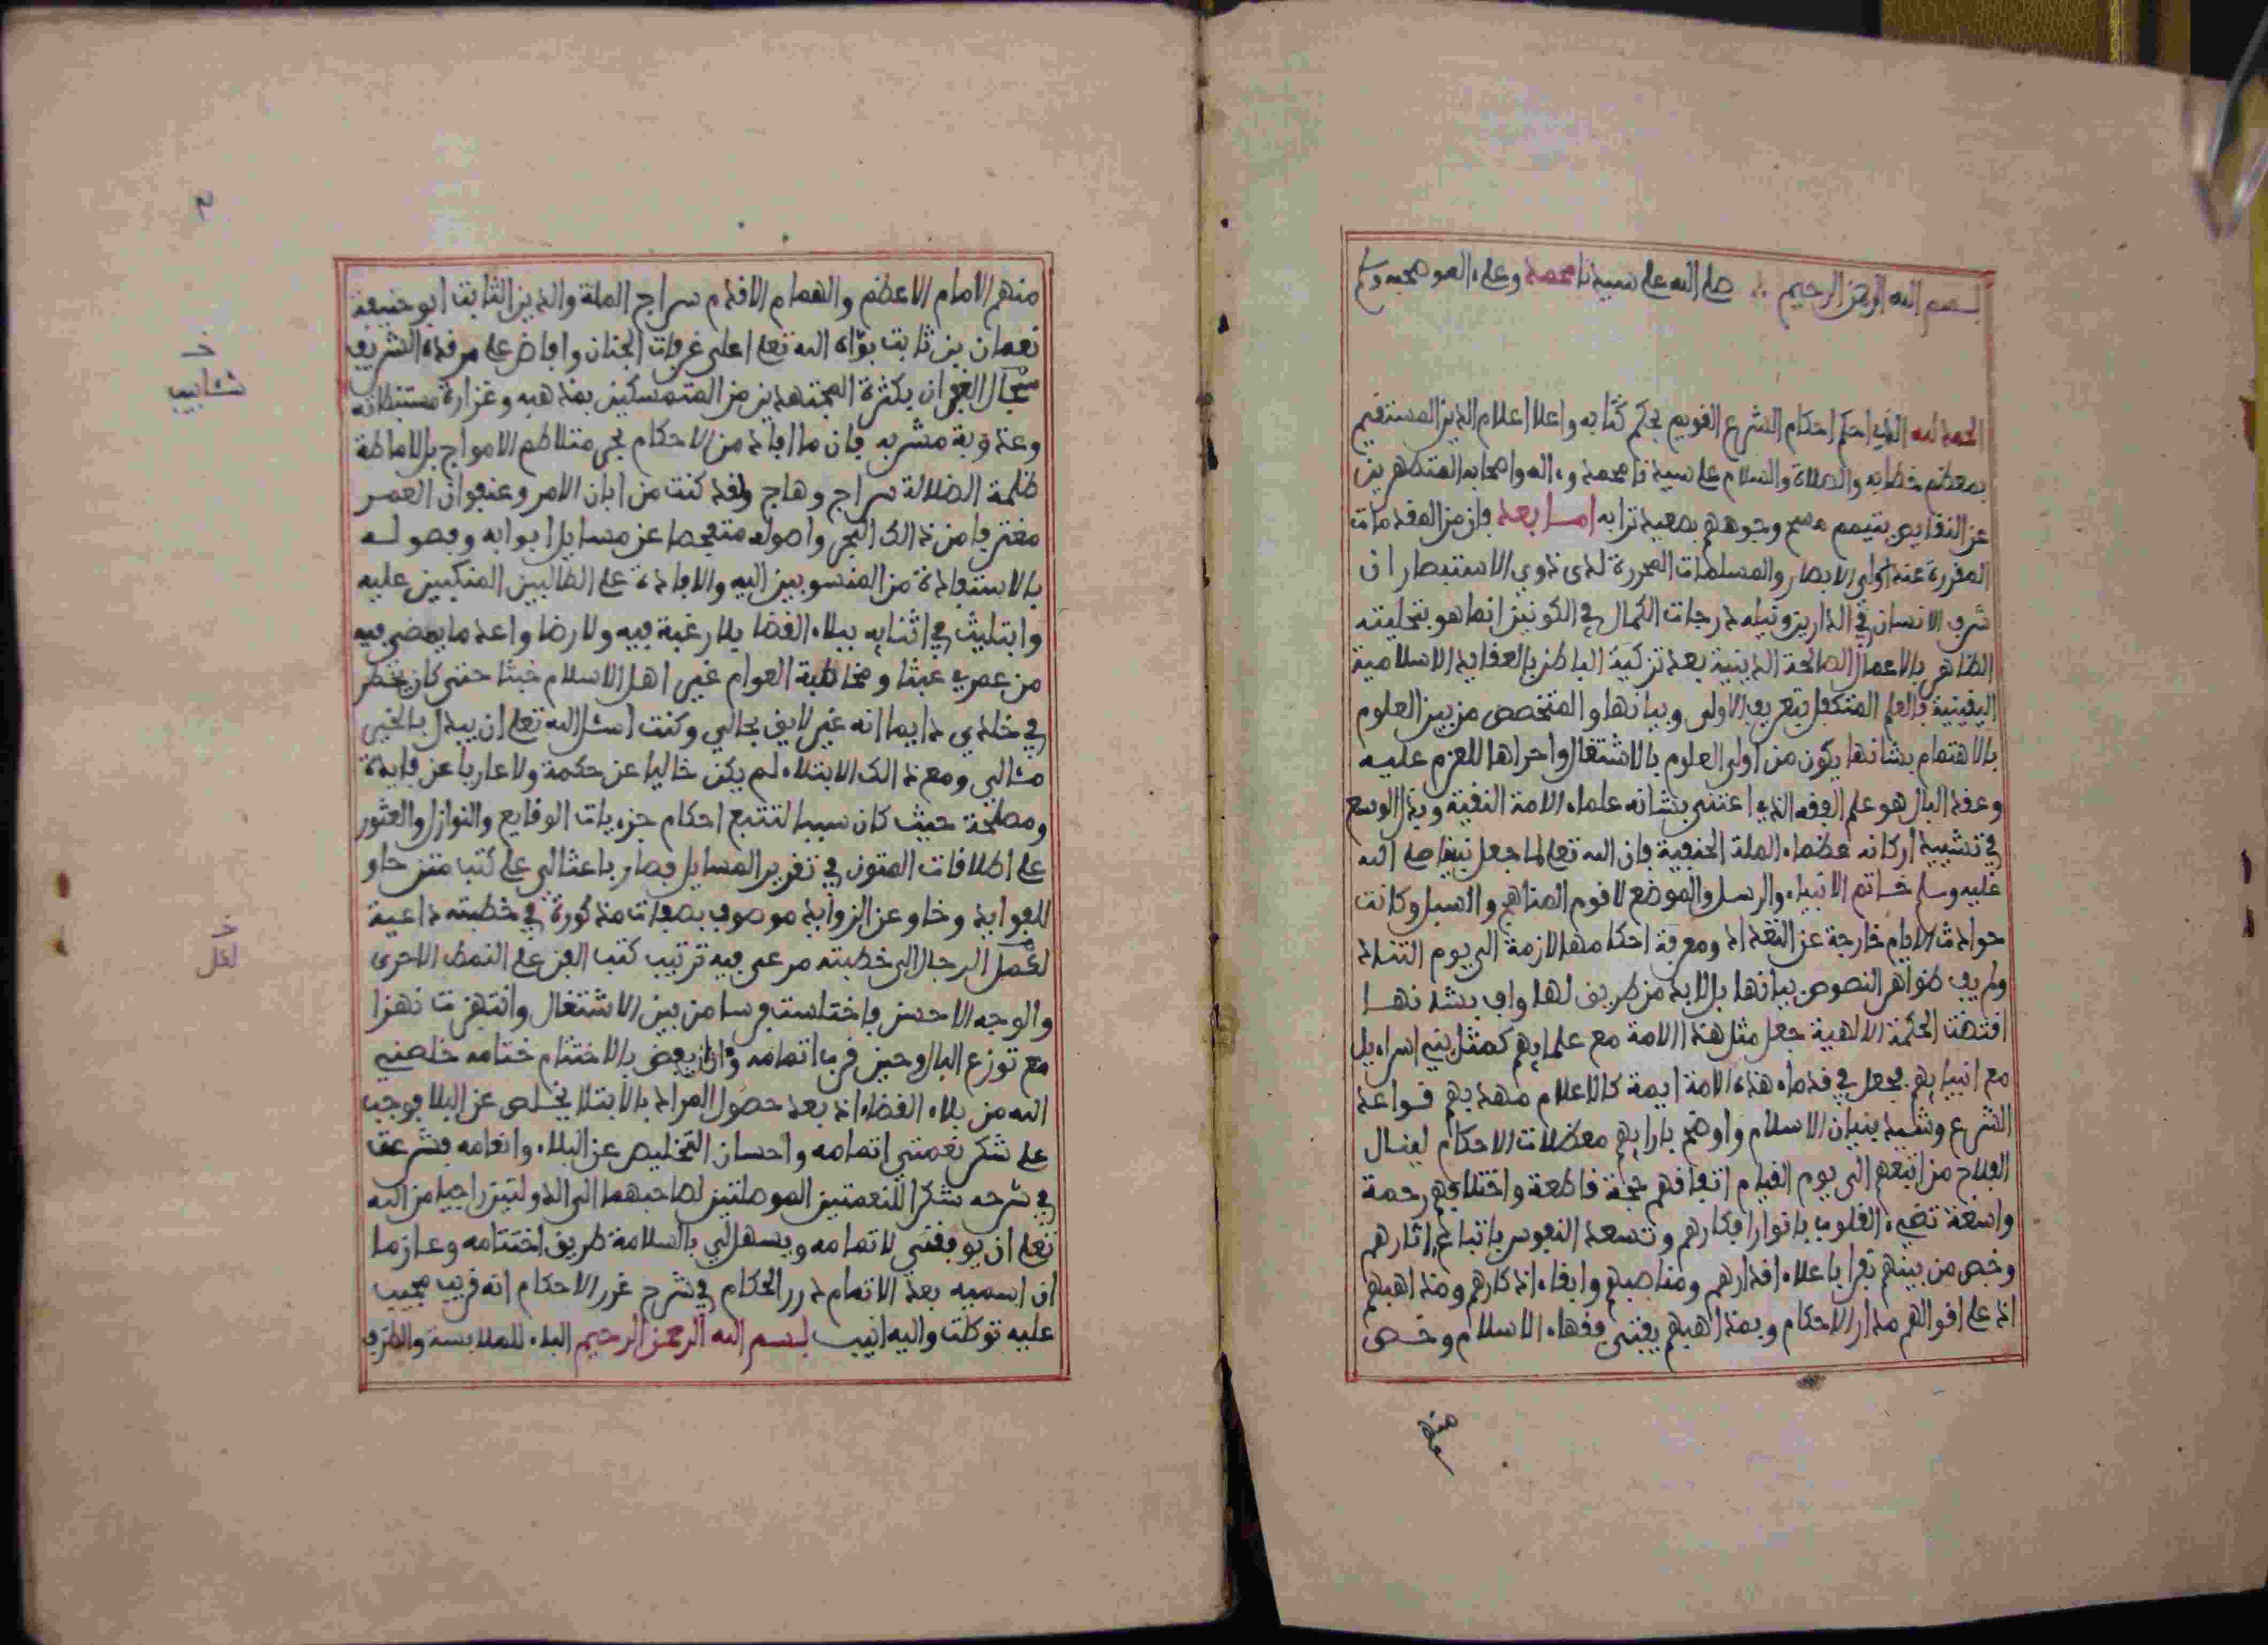 بسم الله الرحمن الرحيم صلى الله على سيدنا محمد وعلى اله وصحبه وسلم
الحمد لله الذي احكم احكام الشرع القويم بمحكم كتابه واعلا اعلام الدين المستقيم
بمعظم خطابه والصلاة والسلام على سيدنا محمد واله واصحابه المتطهرين
عن النقايص بتيمم مسح وجوههم بصعيد ترابه اما بعد فان من المقدمات
المقررة عند اولى الابصار والمسلمات المحررة لدى ذوي الاستبصار ان
شرف الانسان في الدارين ونيله درجات الكمال في الكونين انما هو بتحليته
الظاهر بالاعمال الصالحة الدينية بعد تزكية الباطن بالعقايد الاسلامية
اليقينية فالعلم المتكفل بتعريف الاولى وبيانها والمتخصص من بين العلوم
بالاهتمام بشانها يكون من اولى العلوم بالاشتغال واحراها للعزم عليه
وعقد البال هو علم الفقه الذي اعتنى بشانه علماء الامة النقية وبذل الوسع
في تشييد اركانه عظماء الملة الحنفية فان الله تعلى لما جعل نبينا صلى الله
عليه وسلم خاتم الانبياء والرسل والموضح لاقوم المناهج والسبل وكانت
حوادث الايام خارجة عن التعداد ومعرفة احكامها لازمة الى يوم التناد
ولم يف ظواهر النصوص ببيانها بل لا بد من طريق لها واف بشانها
اقتضت الحكمة الالهية جعل مثل هذا الامة مع علمايهم كمثل بني اسراءيل
مع انبيايهم فجعل في قدماء هذه الامة ايمة كالاعلام مهد بهم قواعد
الشرع وشيد بنيان الاسلام واوضح بارايهم معضلات الاحكام لينال
الفلاح من اتبعهم الى يوم القيام اتفاقهم حجة قاطعة واختلافهم رحمة
واسعة تضيء القلوب بانوار افكارهم وتسعد النفوس باتباع اثارهم
وخص من بينهم نفرا باعلاء اقدارهم ومناصبهم وابقاء اذكارهم ومذاهبهم
اذ على اقوالهم مدار الاحكام وبمذاهبهم يفتي فقهاء الاسلام وخص
منهم
منهم الامام الاعظم والهمام الاقدم سراج الملة والدين الثابت ابو حنيفة
نعمان بن ثابت بوأه الله تعلى اعلى غرفات الجنان وافاض على مرقده الشريف
سجال الغفران بكثرة المجتهدين من المتمسكين بمذهبه وغزارة مستنبطاته
وعذوبة مشربه فان ما افاد من الاحكام بحر متلاطم الامواج بل لاماطة
ظلمة الضلالة سراج وهاج ولقد كنت من ابان الامر وعنفوان العمر
مغترفا من ذالك البحر واصوله متفحصا عن مسايل ابوابه وفصوله
بالاستفادة من المنسوبين اليه والافادة على الطالبين المنكبين عليه
وابتليت في اثنايه ببلاء القضا بلا رغبة فيه ولا رضا واعد ما يمضي فيه
من عمري عبثا ومخالطة العوام غير اهل الاسلام خبثا حتى كان يخطر
في خلدي دايما انه غير لايق بحالي وكنت اسئل الله تعلى ان يبدل بالخير
مئالي ومع ذالك الابتلاء لم يكن خاليا عن حكمة ولا عاريا عن فايدة
ومصلحة حيث كان سببا لتتبع احكام جزءيات الوقايع والنوازل والعثور
على اطلاقات المتون في تقرير المسايل فصار باعثا لي على كتب متن حاو
للفوايد وخاو عن الزوايد موصوف بصفات مذكورة في خطبته داعية
لكمل الرجال الى خطبته مرعى فيه ترتيب كتب الفن على النمط الاحرى
والوجه الاحسن فاختلست فرسا من بين الاشتغال وانتهزت نهزا
مع توزع البال وحين قرب اتمامه وان يفض بالاختتام ختامه خلصني
الله من بلاء القضاء اذ بعد حصول المراد بالابتلا يخلص عن البلا فوجب
على شكر نعمتي اتمامه واحسان التخليص عن البلاء وانعامه فشرعت
في شرحه شكرا للنعمتين الموصلتين لصاحبهما الى الدولتين راجيا من الله
تعلى ان يوفقني لاتمامه ويسهل لي بالسلامة طريق اختتامه وعازما
ان اسميه بعد الاتمام درر الحكام في شرح غرر الاحكام انه قريب مجيب
عليه توكلت واليه انيب بسم الله الرحمن الرحيم الباء للملابسة والظرف
خ
شئابيب
خ
لكل